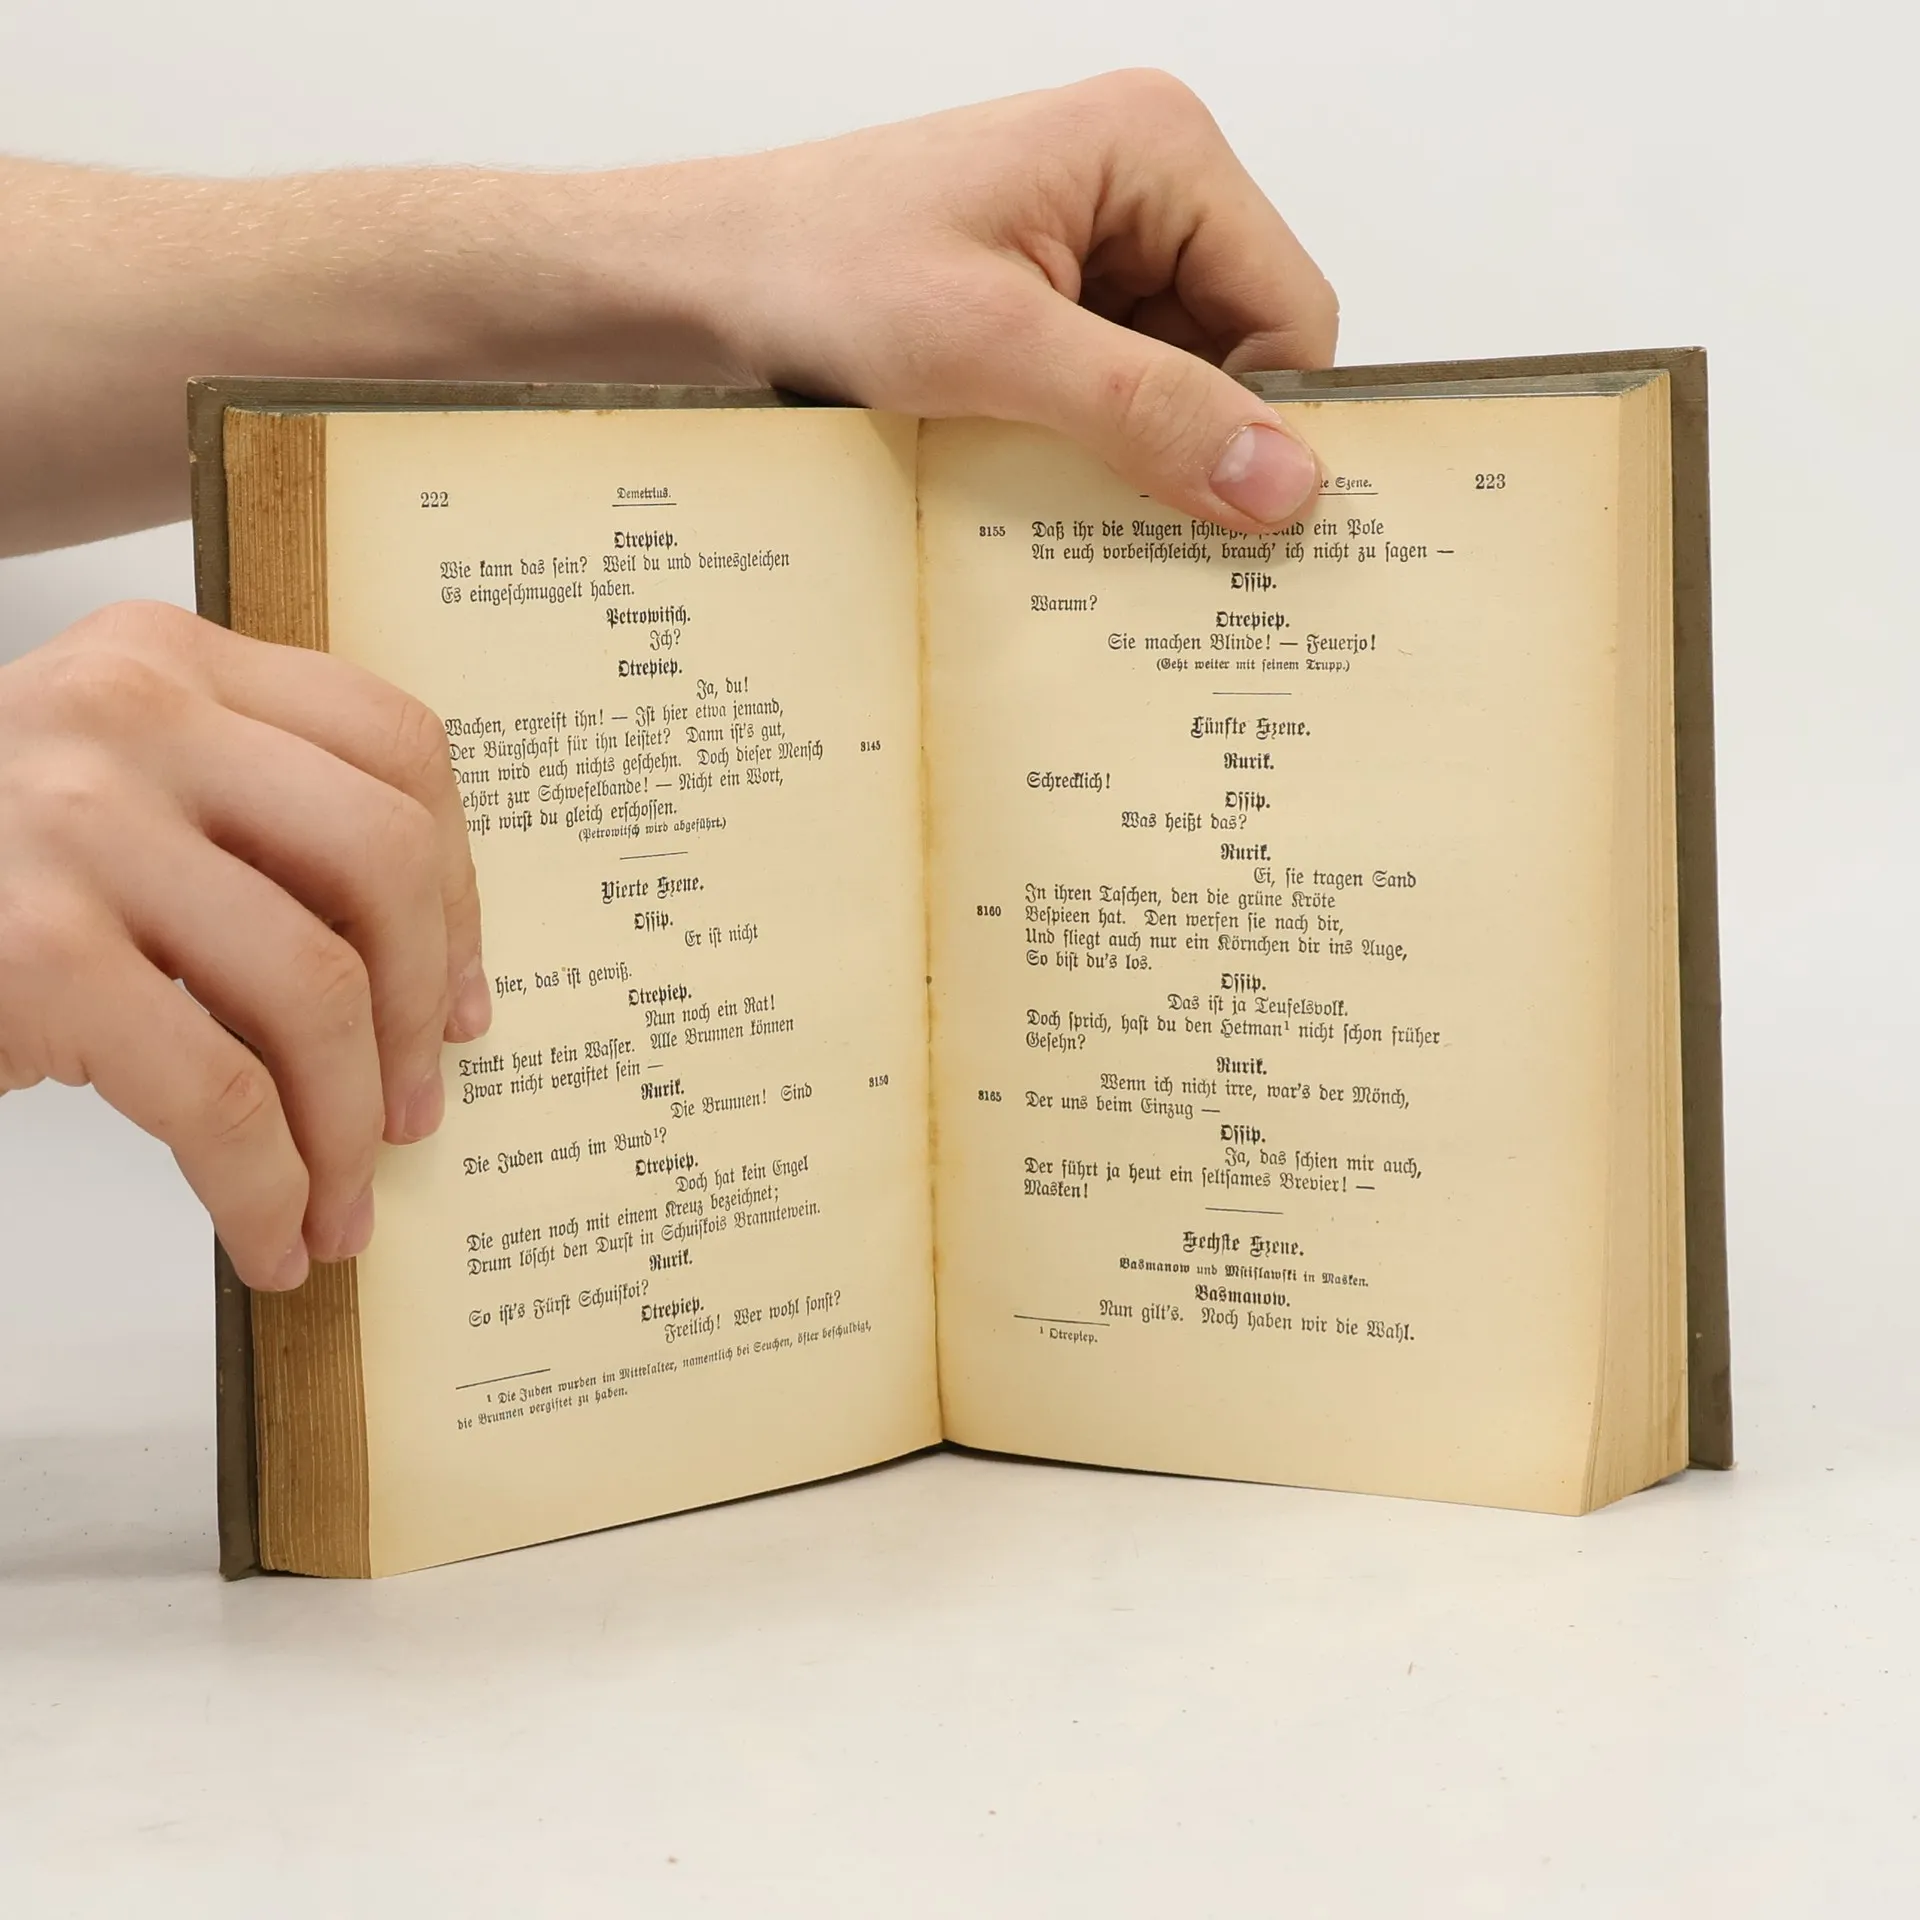 222
Demetrius.
Otrepiep.
Wie kann das sein? Weil du und deinesgleichen
Es eingeschmuggelt haben.
Petrowitsch.
Ich?
Otrepiep.
Ja, du!
Wachen, ergreift ihn! — Ist hier etwa jemand,
Der Bürgschaft für ihn leistet? Dann ist's gut,
Dann wird euch nichts geschehn. Doch dieser Mensch 3145
ehört zur Schwefelbande! — Nicht ein Wort,
onst wirst du gleich erschossen.
(Petrowitsch wird abgeführt.)
Vierte Szene.
Ossip.
Er ist nicht
hier, das ist gewiß.
Otrepiep.
Nun noch ein Rat!
Trinkt heut kein Wasser. Alle Brunnen können
Zwar nicht vergiftet sein —
Rurik.
Die Brunnen! Sind 3150
Die Juden auch im Bund¹?
Otrepiep.
Doch hat kein Engel
Die guten noch mit einem Kreuz bezeichnet;
Drum löscht den Durst in Schuiskois Branntewein.
Rurik.
So ist's Fürst Schuiskoi?
Otrepiep.
Freilich! Wer wohl sonst?
¹ Die Juden wurden im Mittelalter, namentlich bei Seuchen, öfter beschuldigt,
die Brunnen vergiftet zu haben.
te Szene. 223
3155 Daß ihr die Augen ein Pole
An euch vorbeischleicht, brauch' ich nicht zu sagen —
Ossip.
Warum?
Otrepiep.
Sie machen Blinde! — Feuerjo!
(Geht weiter mit seinem Trupp.)
Fünfte Szene.
Rurik.
Schrecklich!
Ossip.
Was heißt das?
Rurik.
Ei, sie tragen Sand
In ihren Taschen, den die grüne Kröte
3160 Bespieen hat. Den werfen sie nach dir,
Und fliegt auch nur ein Körnchen dir ins Auge,
So bist du's los.
Ossip.
Das ist ja Teufelsvolk.
Doch sprich, hast du den Hetman¹ nicht schon früher
Gesehn?
Rurik.
Wenn ich nicht irre, war's der Mönch,
3165 Der uns beim Einzug —
Ossip.
Ja, das schien mir auch,
Der führt ja heut ein seltsames Brevier! —
Masken!
Sechste Szene.
Basmanow und Mstislawski in Masken.
Basmanow.
Nun gilt's. Noch haben wir die Wahl.
¹ Otrepiep.